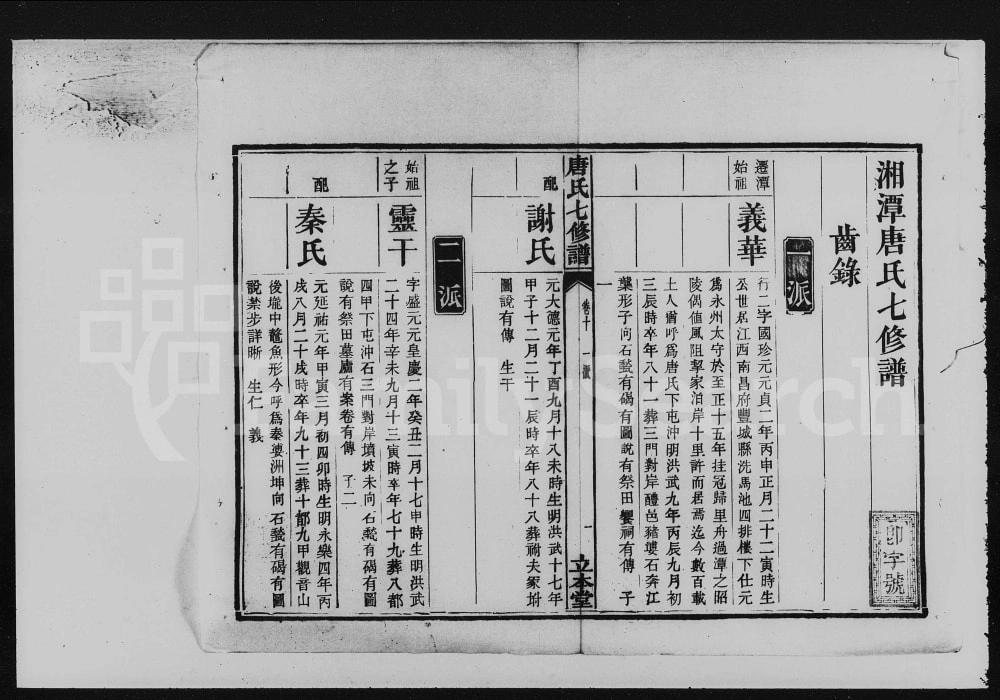 湘潭唐氏七修譜
卽字號
齒錄
一派
遷潭
始祖
義華
行二字國珍元元貞二年丙申正月二十二寅時生
公世居江西南昌府豐城縣洗馬池四排樓下仕元
爲永州太守於至正十五年挂冠歸里舟過潭之昭
陵偶值風阻挈家泊岸十里許而居焉迄今數百載
土人酋呼爲唐氏下屯沖明洪武九年丙辰九月初
三辰時卒年八十一葬三門對岸醴邑豬婆石奔江
藥形子向石誌有碣有圖說有祭田饗祠有傳 子
一
配
謝氏
元大德元年丁酉九月十八未時生明洪武十七年
甲子十二月二十一辰時卒年八十八葬祔夫冢坿
圖說有傳 生干
唐氏七修譜
卷十 一派
一
立本堂
二派
始祖
之子
靈干
字盛元元皇慶二年癸丑二月十七申時生明洪武
二十四年辛未九月十三寅時卒年七十九葬八都
四甲下屯沖石三門對岸墳坡未向石誌有碣有圖
說有祭田墓廬有案卷有傳 子二
配
秦氏
元延祐元年甲寅三月初四卯時生明永樂四年丙
戌八月二十戌時卒年九十三葬十都九甲觀音山
後壠中鼇魚形今呼爲秦婆洲坤向石誌有碣有圖
說禁步詳晰 生仁 義
FamilySearch